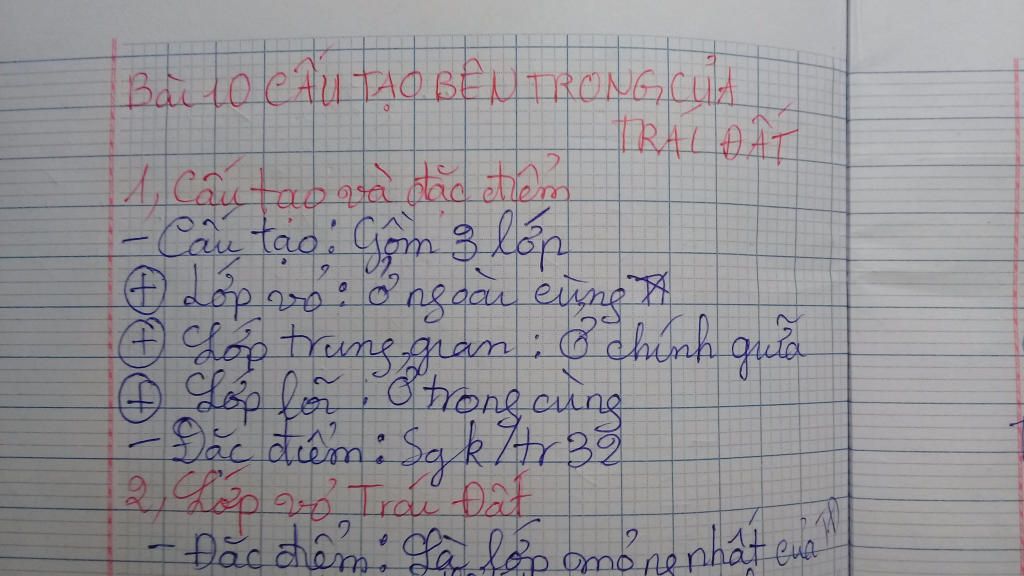 Bài 10 CẤU TẠO BÊN TRONG CỦA
TRÁI ĐẤT
1, Cấu tạo và đặc điểm
- Cấu tạo: Gồm 3 lớp
+ Lớp vỏ: Ở ngoài cùng
+ Lớp trung gian: Ở chính giữa
+ Lớp lõi: Ở trong cùng
- Đặc điểm: Sgk/tr 32
2, Lớp vỏ Trái Đất
- Đặc điểm: Là lớp mỏng nhất của